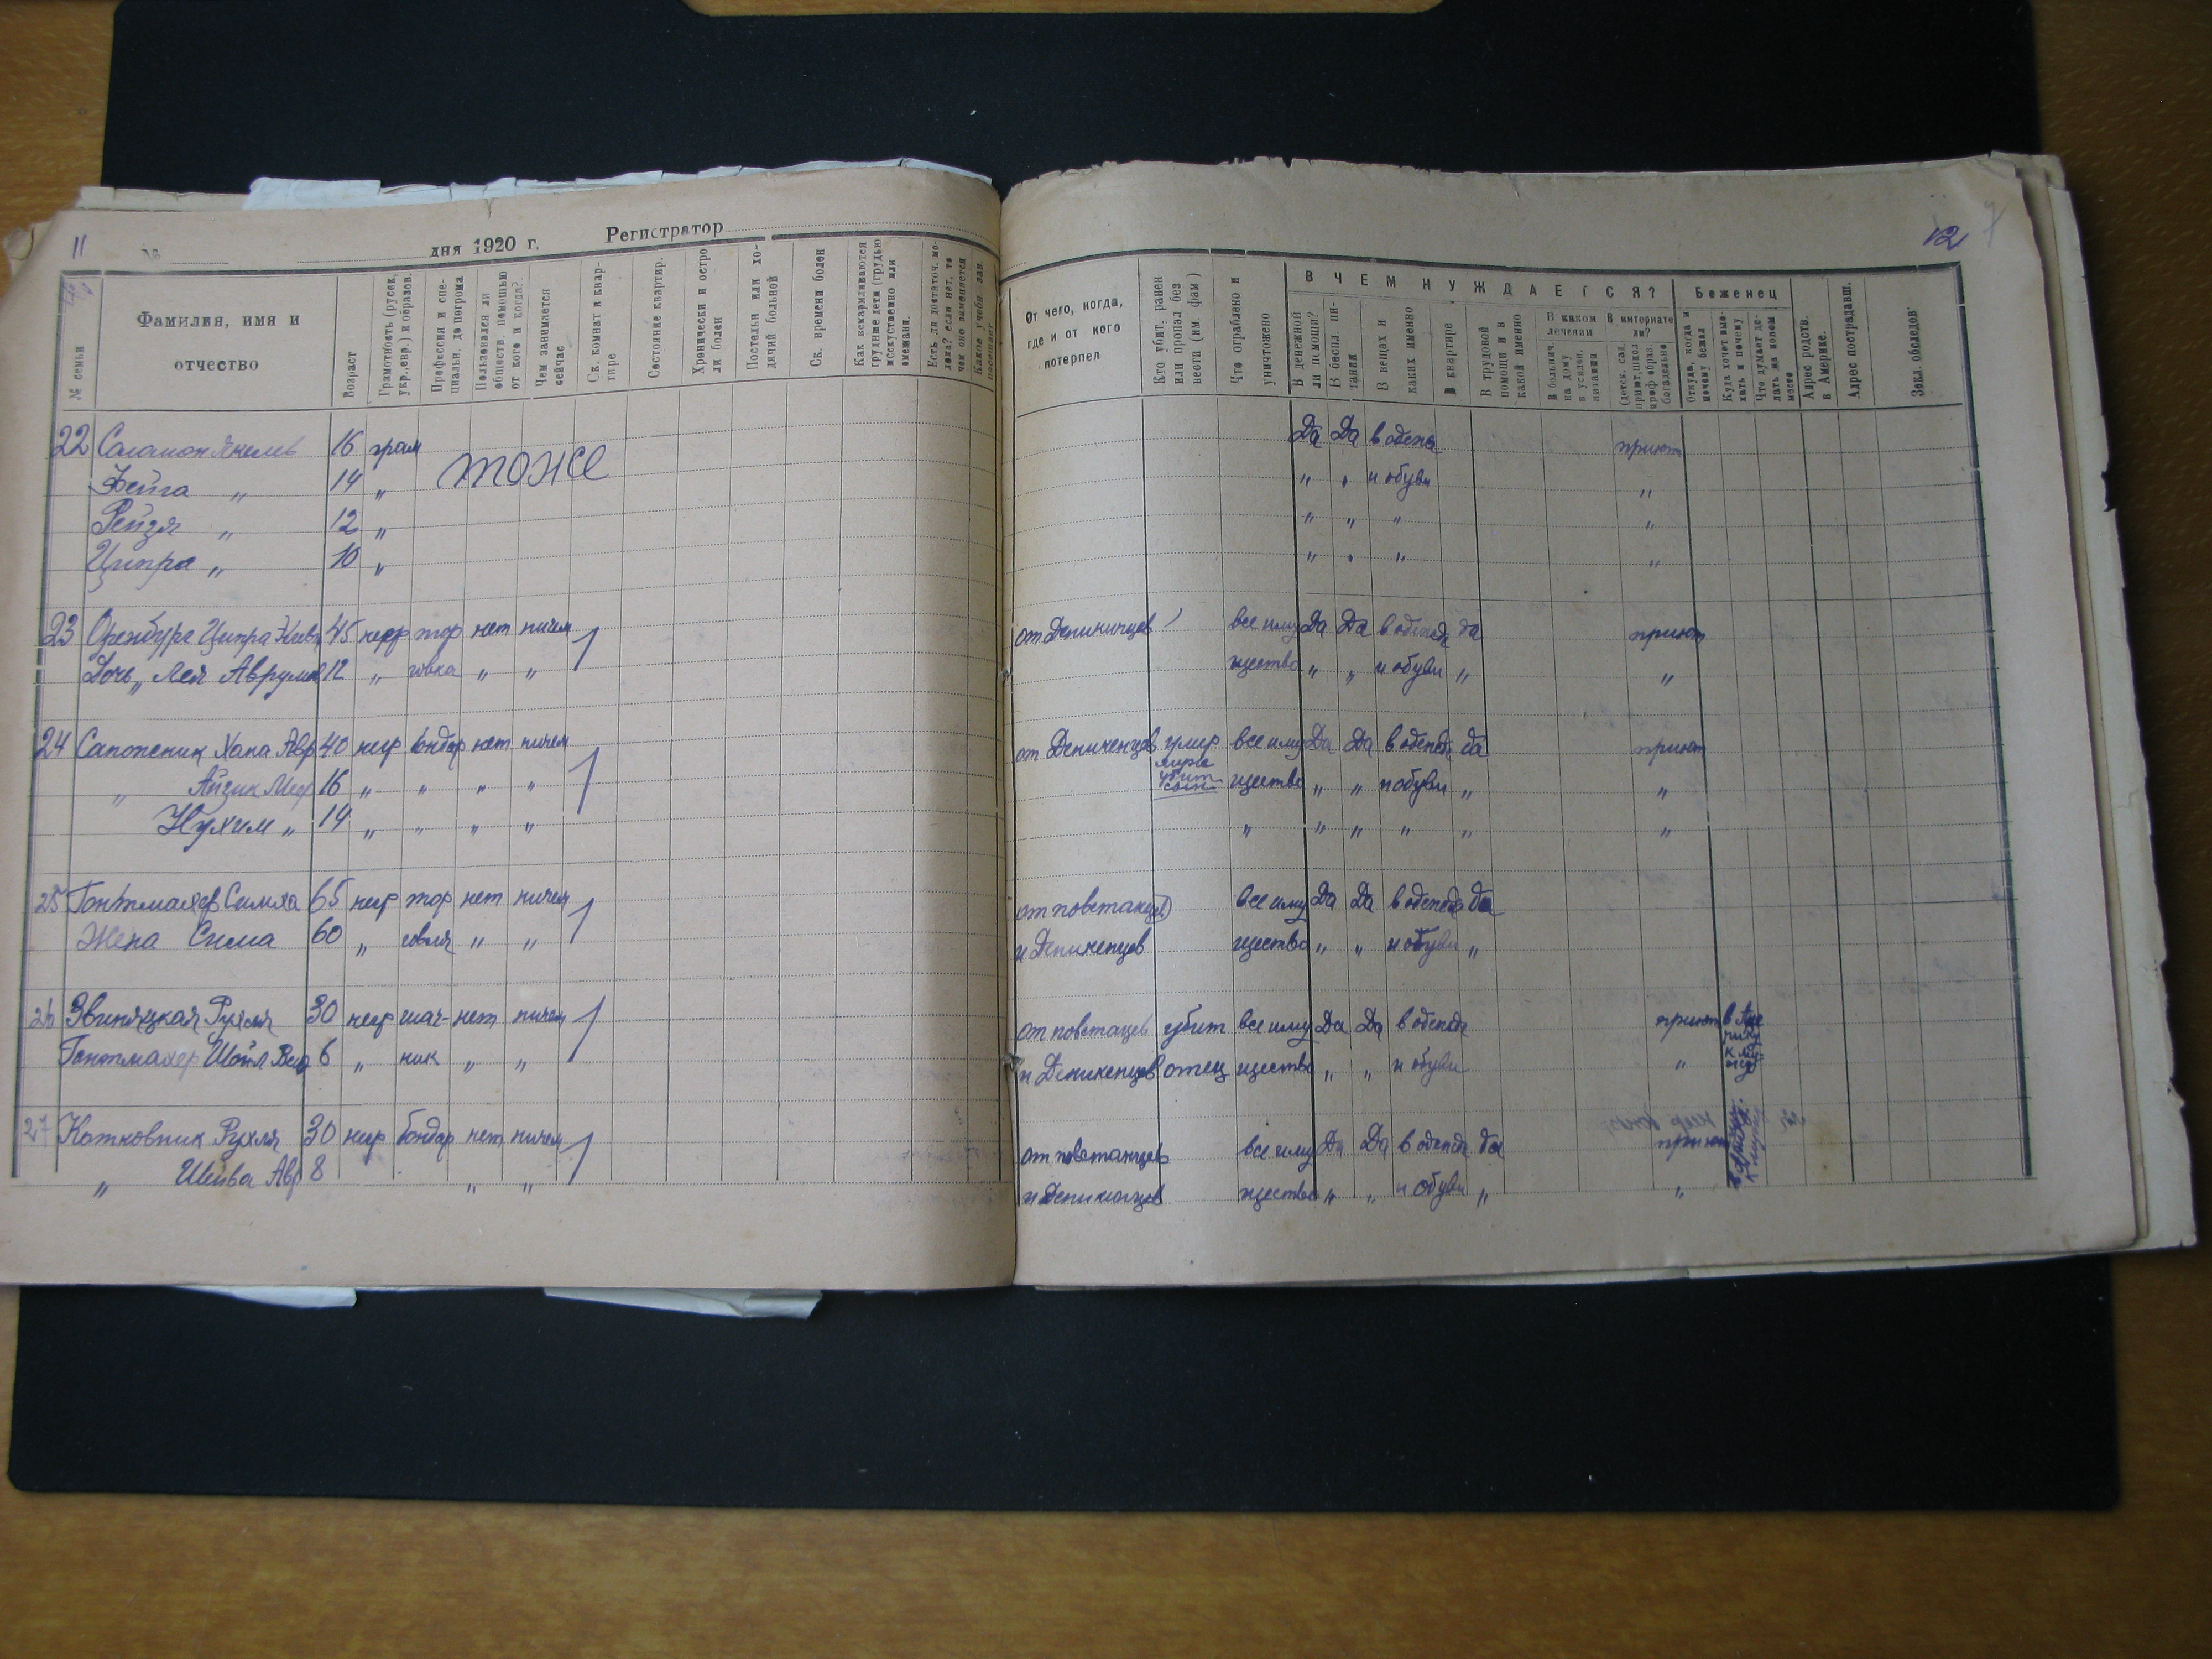 11
№ дня 1920 г. Регистратор
№ семьи
Фамилия, имя и отчество
Возраст
Грамотность (русск, укр., евр.) и образов.
Профессия и специальн. до погрома
Пользовался ли обществ. помощью от кого и когда?
Чем занимается сейчас
Ск. комнат в квартире
Состояние квартир.
Хронически и остро ли болен
Постельн или ходячий больной
Ск. времени болен
Как вскармливаются грудные дети (грудью искусственно или смешан).
Есть ли достаточ. молока? если нет, то чем оно заменяется
22 Соломон Янкелев 16 грам тоже
Фейга " 14 "
Рейзя " 12 "
Ципра " 10 "
23 Оренбург Ципра 45 негр тор нет ничем 1
Дочь " Лея Аврумов 12 " говка " "
24 Сапожник Хана Авр 40 негр бондар нет ничем 1
" Айзик Меер 16 " " " "
Нухим " 14 " " " "
25 Гонтмахер Симха 65 негр тор нет ничем 1
Жена Сима 60 " говля " "
26 Звиняцкая Рухля 30 негр нет ничем 1
Гонтмахер Шойл 6 " ник " "
27 Котковник Рухля 30 негр бондар нет ничем 1
" Шейва Авр 8 " "
12
От чего, когда, где и от кого потерпел
Кто убит, ранен или пропал без вести (им. фам)
Что ограблено и уничтожено
В ЧЕМ НУЖДАЕТСЯ?
В денежной ли помощи?
В беспл. питании
В вещах и каких именно
В квартире
В трудовой помощи и в какой именно
В каком лечении
В больнич. на дому в усилен. питании
В интернате ли?
(детск. сад, приют, школ проф образ. богадельне
Беженец
Откуда, когда и почему бежал
Куда хочет выехать и почему
Что думает делать на новом месте
Адрес родств. в Америке.
Адрес пострадавш.
Закл. обследов
Да Да в одежд приют
" " и обуви "
" " " "
" " " "
от Деникинцев все иму Да Да в одежде да приют
щество " " и обуви " "
от Деникенцев умир все иму Да Да в одежде да приют
муж убит сын щество " " и обуви " "
" " " " " "
от повстанцев все иму Да Да в одежде да
и Деникенцов щество " " и обуви "
от повстацев убит все иму Да Да в одежде приют
и Деникенцов отец щество " " и обуви "
от повстанцев все иму Да Да в одежде да приют
и Деникинцев щество " " и обуви " "